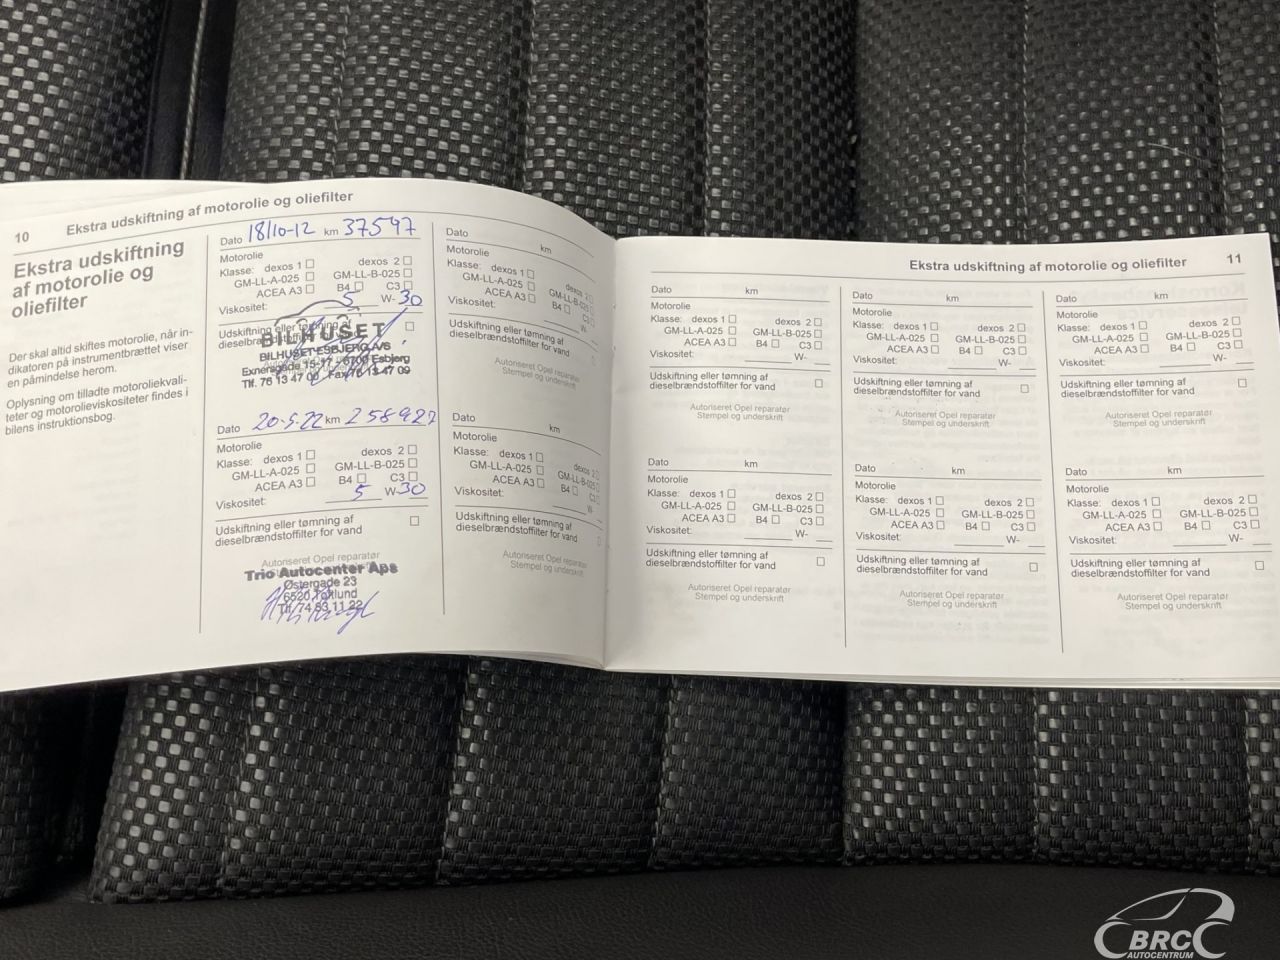 10
Ekstra udskiftning af motorolie og oliefilter
Ekstra udskiftning
af motorolie og
oliefilter
Der skal altid skiftes motorolie, når in-
dikatoren på instrumentbrættet viser
en påmindelse herom.
Oplysning om tilladte motoroliekvali-
teter og motorolieviskositeter findes i
bilens instruktionsbog.
Dato 18/10-12 km 37547
Motorolie
Klasse: dexos 1 ☐ dexos 2 ☐
GM-LL-A-025 ☐ GM-LL-B-025 ☐
ACEA A3 ☐ B4 ☐ C3 ☐
Viskositet: 5 W-30
Udskiftning eller tømning af
dieselbrændstoffilter for vand ☐
BILHUSET
BILHUSET ESBJERG A/S
Exnersgade 15-17 - 6700 Esbjerg
Tlf. 76 13 47 00 Fax 76 13 47 09
Dato 20-5-22 km 258927
Motorolie
Klasse: dexos 1 ☐ dexos 2 ☐
GM-LL-A-025 ☐ GM-LL-B-025 ☐
ACEA A3 ☐ B4 ☐ C3 ☐
Viskositet: 5 W-30
Udskiftning eller tømning af
dieselbrændstoffilter for vand ☐
Autoriseret Opel reparatør
Trio Autocenter Aps
Østergade 23
6520 Toftlund
Tlf. 74 83 11 22
Dato km
Motorolie
Klasse: dexos 1 ☐ dexos 2 ☐
GM-LL-A-025 ☐ GM-LL-B-025
ACEA A3 ☐ B4 ☐ C3
Viskositet: W-
Udskiftning eller tømning af
dieselbrændstoffilter for vand
Autoriseret Opel reparatør
Stempel og underskrift
Dato km
Motorolie
Klasse: dexos 1 ☐ dexos 2
GM-LL-A-025 ☐ GM-LL-B-025
ACEA A3 ☐ B4 ☐ C3
Viskositet: W-
Udskiftning eller tømning af
dieselbrændstoffilter for vand
Autoriseret Opel reparatør
Stempel og underskrift
Ekstra udskiftning af motorolie og oliefilter
11
Dato km
Motorolie
Klasse: dexos 1 ☐ dexos 2 ☐
GM-LL-A-025 ☐ GM-LL-B-025 ☐
ACEA A3 ☐ B4 ☐ C3 ☐
Viskositet: W-
Udskiftning eller tømning af
dieselbrændstoffilter for vand ☐
Autoriseret Opel reparatør
Stempel og underskrift
Dato km
Motorolie
Klasse: dexos 1 ☐ dexos 2 ☐
GM-LL-A-025 ☐ GM-LL-B-025 ☐
ACEA A3 ☐ B4 ☐ C3 ☐
Viskositet: W-
Udskiftning eller tømning af
dieselbrændstoffilter for vand ☐
Autoriseret Opel reparatør
Stempel og underskrift
Dato km
Motorolie
Klasse: dexos 1 ☐ dexos 2 ☐
GM-LL-A-025 ☐ GM-LL-B-025 ☐
ACEA A3 ☐ B4 ☐ C3 ☐
Viskositet: W-
Udskiftning eller tømning af
dieselbrændstoffilter for vand ☐
Autoriseret Opel reparatør
Stempel og underskrift
Dato km
Motorolie
Klasse: dexos 1 ☐ dexos 2 ☐
GM-LL-A-025 ☐ GM-LL-B-025 ☐
ACEA A3 ☐ B4 ☐ C3 ☐
Viskositet: W-
Udskiftning eller tømning af
dieselbrændstoffilter for vand ☐
Autoriseret Opel reparatør
Stempel og underskrift
Dato km
Motorolie
Klasse: dexos 1 ☐ dexos 2 ☐
GM-LL-A-025 ☐ GM-LL-B-025 ☐
ACEA A3 ☐ B4 ☐ C3 ☐
Viskositet: W-
Udskiftning eller tømning af
dieselbrændstoffilter for vand ☐
Autoriseret Opel reparatør
Stempel og underskrift
Dato km
Motorolie
Klasse: dexos 1 ☐ dexos 2 ☐
GM-LL-A-025 ☐ GM-LL-B-025 ☐
ACEA A3 ☐ B4 ☐ C3 ☐
Viskositet: W-
Udskiftning eller tømning af
dieselbrændstoffilter for vand ☐
Autoriseret Opel reparatør
Stempel og underskrift
BRC
AUTOCENTRUM